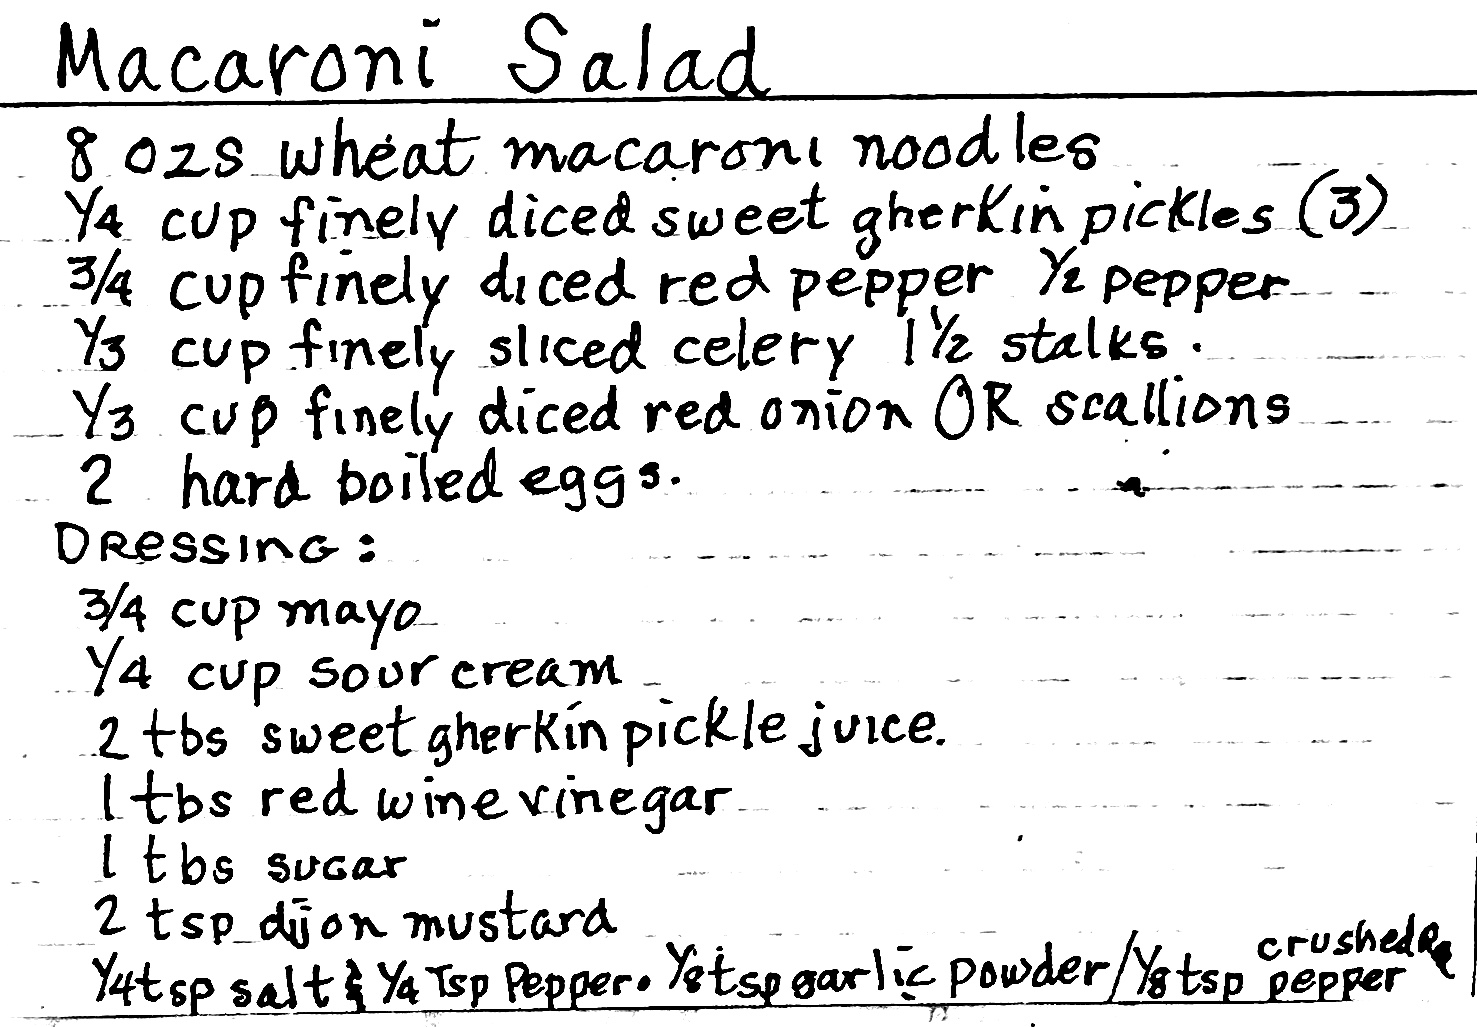 Macaroni Salad
8 ozs wheat macaroni noodles
1/4 cup finely diced sweet gherkin pickles (3)
3/4 cup finely diced red pepper 1/2 pepper
1/3 cup finely sliced celery 1 1/2 stalks.
1/3 cup finely diced red onion OR scallions
2 hard boiled eggs.
Dressing:
3/4 cup mayo
1/4 cup sour cream
2 tbs sweet gherkin pickle juice.
1 tbs red wine vinegar
1 tbs sugar
2 tsp dijon mustard
1/4 tsp salt & 1/4 Tsp Pepper. 1/8 tsp garlic powder/1/8 tsp crushed pepper